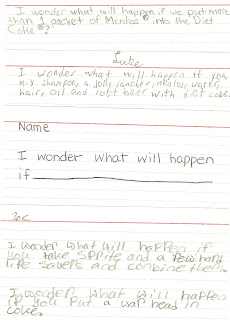 I wonder what will happen if we put more
than 1 packet of Mentos® into the Diet
Coke®?
Luke
I wonder what will happen if you
mix shampoo, a jolly rancher, mentos, water,
hair, oil and root beer with diet coke.
Name
I wonder what will happen
if
Zac
I wonder what will happen if
you take sprite and a few hard
life savers and conbine them.
I wonder what will happen
if you put a war head in
coke.